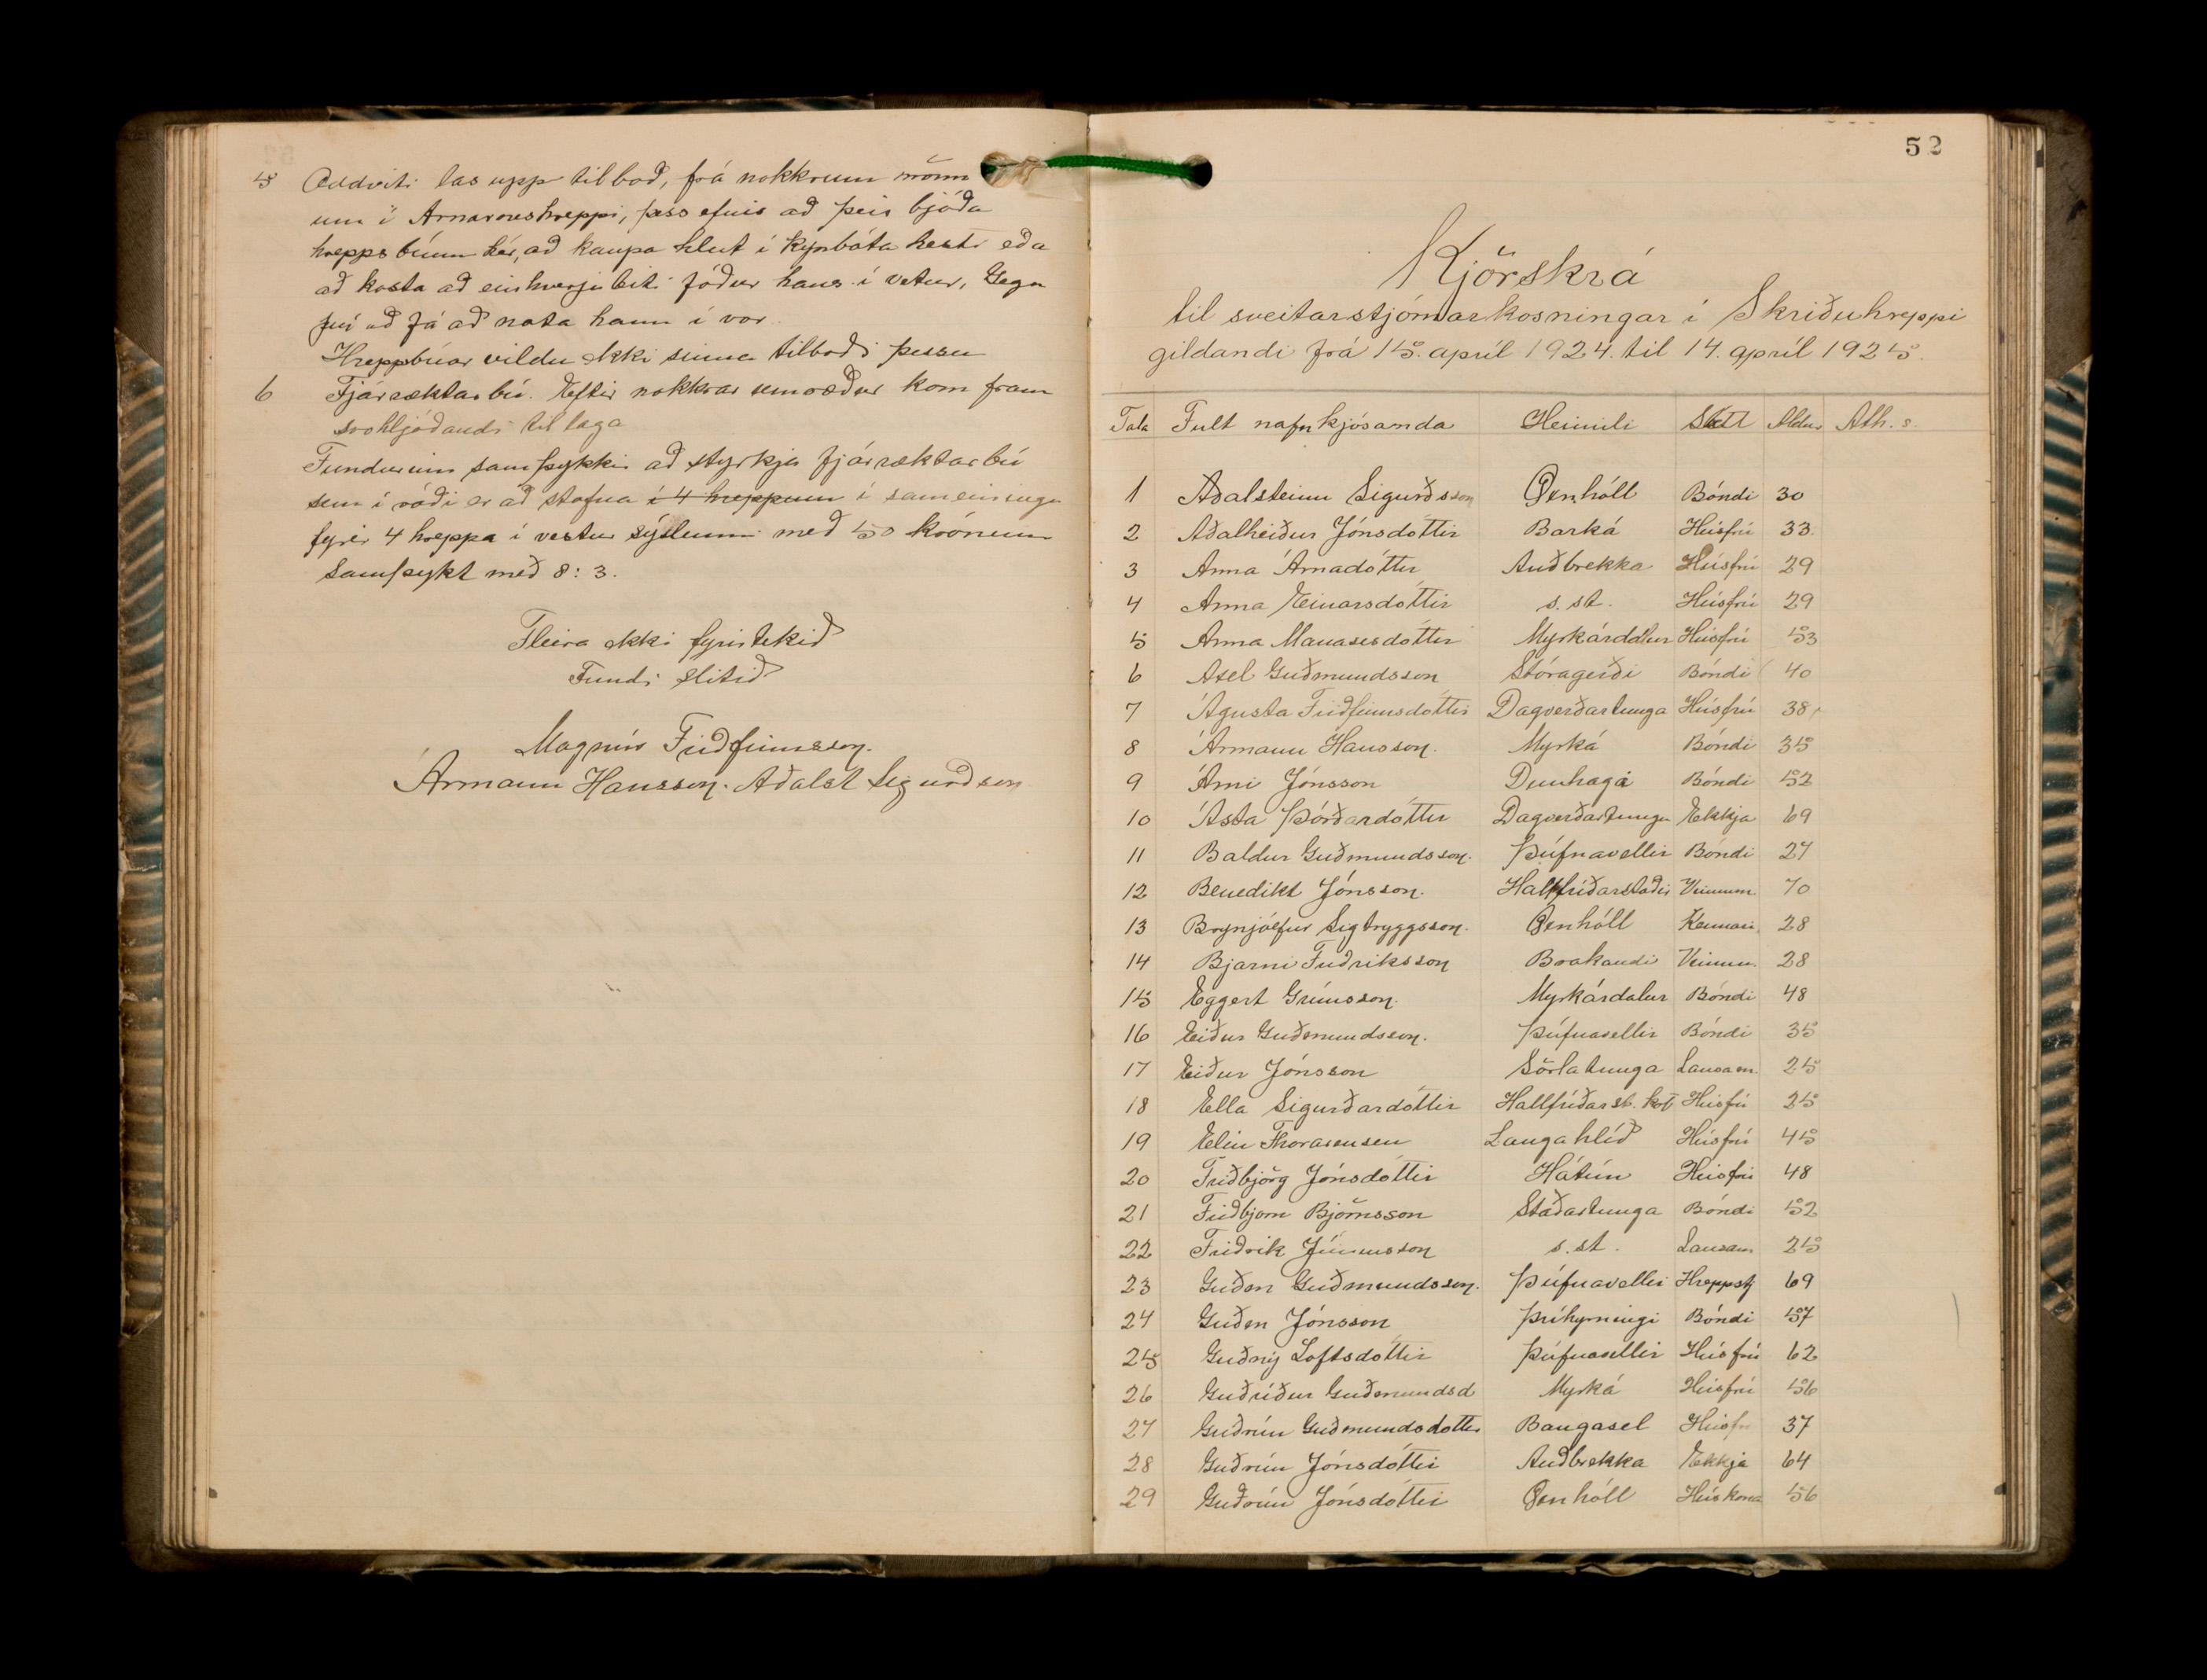 5 Oddviti las upp tilboð, frá nokkrum mönn
um í Arnarneshreppi, þess efnis að þeir bjóða
hreppsbúum hér, að kaupa hlut í kynbóta hesti eða
að kosta að einhverju leiti fóður hans í vetur, Gegn
því að fá að nota hann í vor.
Hreppbúar vildu ekki sinna tilboði þessu
6 Fjárræktarbú. Eftir nokkrar umræður kom fram
svohljóðandi tillaga
Fundurinn samþykkir að styrkja fjárræktarbú
sem í ráði er að stofna í 4 hreppum í sameiningu
fyrir 4 hreppa í vestur sýslunni með 50 krónum
Samþykt með 8:3.
Fleira ekki fyrirtekið
Fundi slitið
Magnús Friðfinnsson.
Ármann Hansson. Aðalst Sigurðsson
52
Kjörskrá
til sveitarstjórnarkosningar í Skriðuhreppi
gildandi frá 15. apríl 1924. til 14. apríl 1925.
Tala Fult nafn kjósanda Heimili Stétt Aldur Ath.s.
1 Aðalsteinn Sigurðsson Öxnhóll Bóndi 30
2 Aðalheiður Jónsdóttir Barká Húsfrú 33
3 Anna Árnadóttir Auðbrekka Húsfrú 29
4 Anna Einarsdóttir s. st. Húsfrú 29
5 Anna Manasesdóttir Myrkárdalur Húsfrú 53
6 Axel Guðmundsson Stóragerði Bóndi 40
7 Ágústa Friðfinnsdóttir Dagverðartunga Húsfrú 38
8 Ármann Hansson. Myrká Bóndi 35
9 Árni Jónsson Dunhaga Bóndi 52
10 Ásta Þórðardóttir Dagverðartunga Ekkja 69
11 Baldur Guðmundsson. Þúfnavellir Bóndi 27
12 Benedikt Jónsson. Hallfríðarstaðir Vinnum 70
13 Brynjólfur Sigtryggsson. Öxnhóll Kennari 28
14 Bjarni Friðriksson Brakandi Vinnum. 28
15 Eggert Grímsson. Myrkárdalur Bóndi 48
16 Eiður Guðmundsson. Þúfnavellir Bóndi 35
17 Eiður Jónsson Sörlatunga Lausam. 25
18 Ella Sigurðardóttir Hallfríðarst. kot Húsfrú 25
19 Elín Thorarensen Langahlíð Húsfrú 45
20 Friðbjörg Jónsdóttir Hátún Húsfrú 48
21 Friðbjörn Björnsson Staðartunga Bóndi 52
22 Friðrik s. st. Lausam 25
23 Guðm Guðmundsson. Þúfnavellir Hreppstj 69
24 Guðm Jónsson Þríhyrningi Bóndi 57
25 Guðný Loftsdóttir Þúfnavellir Húsfrú 62
26 Guðríður Guðmundsd Myrká Húsfrú 56
27 Guðrún Guðmundsdóttir Baugasel Húsfr 37
28 Guðrún Jónsdóttir Auðbrekka Ekkja 64
29 Guðrún Jónsdóttir Öxnhóll Húskona 56